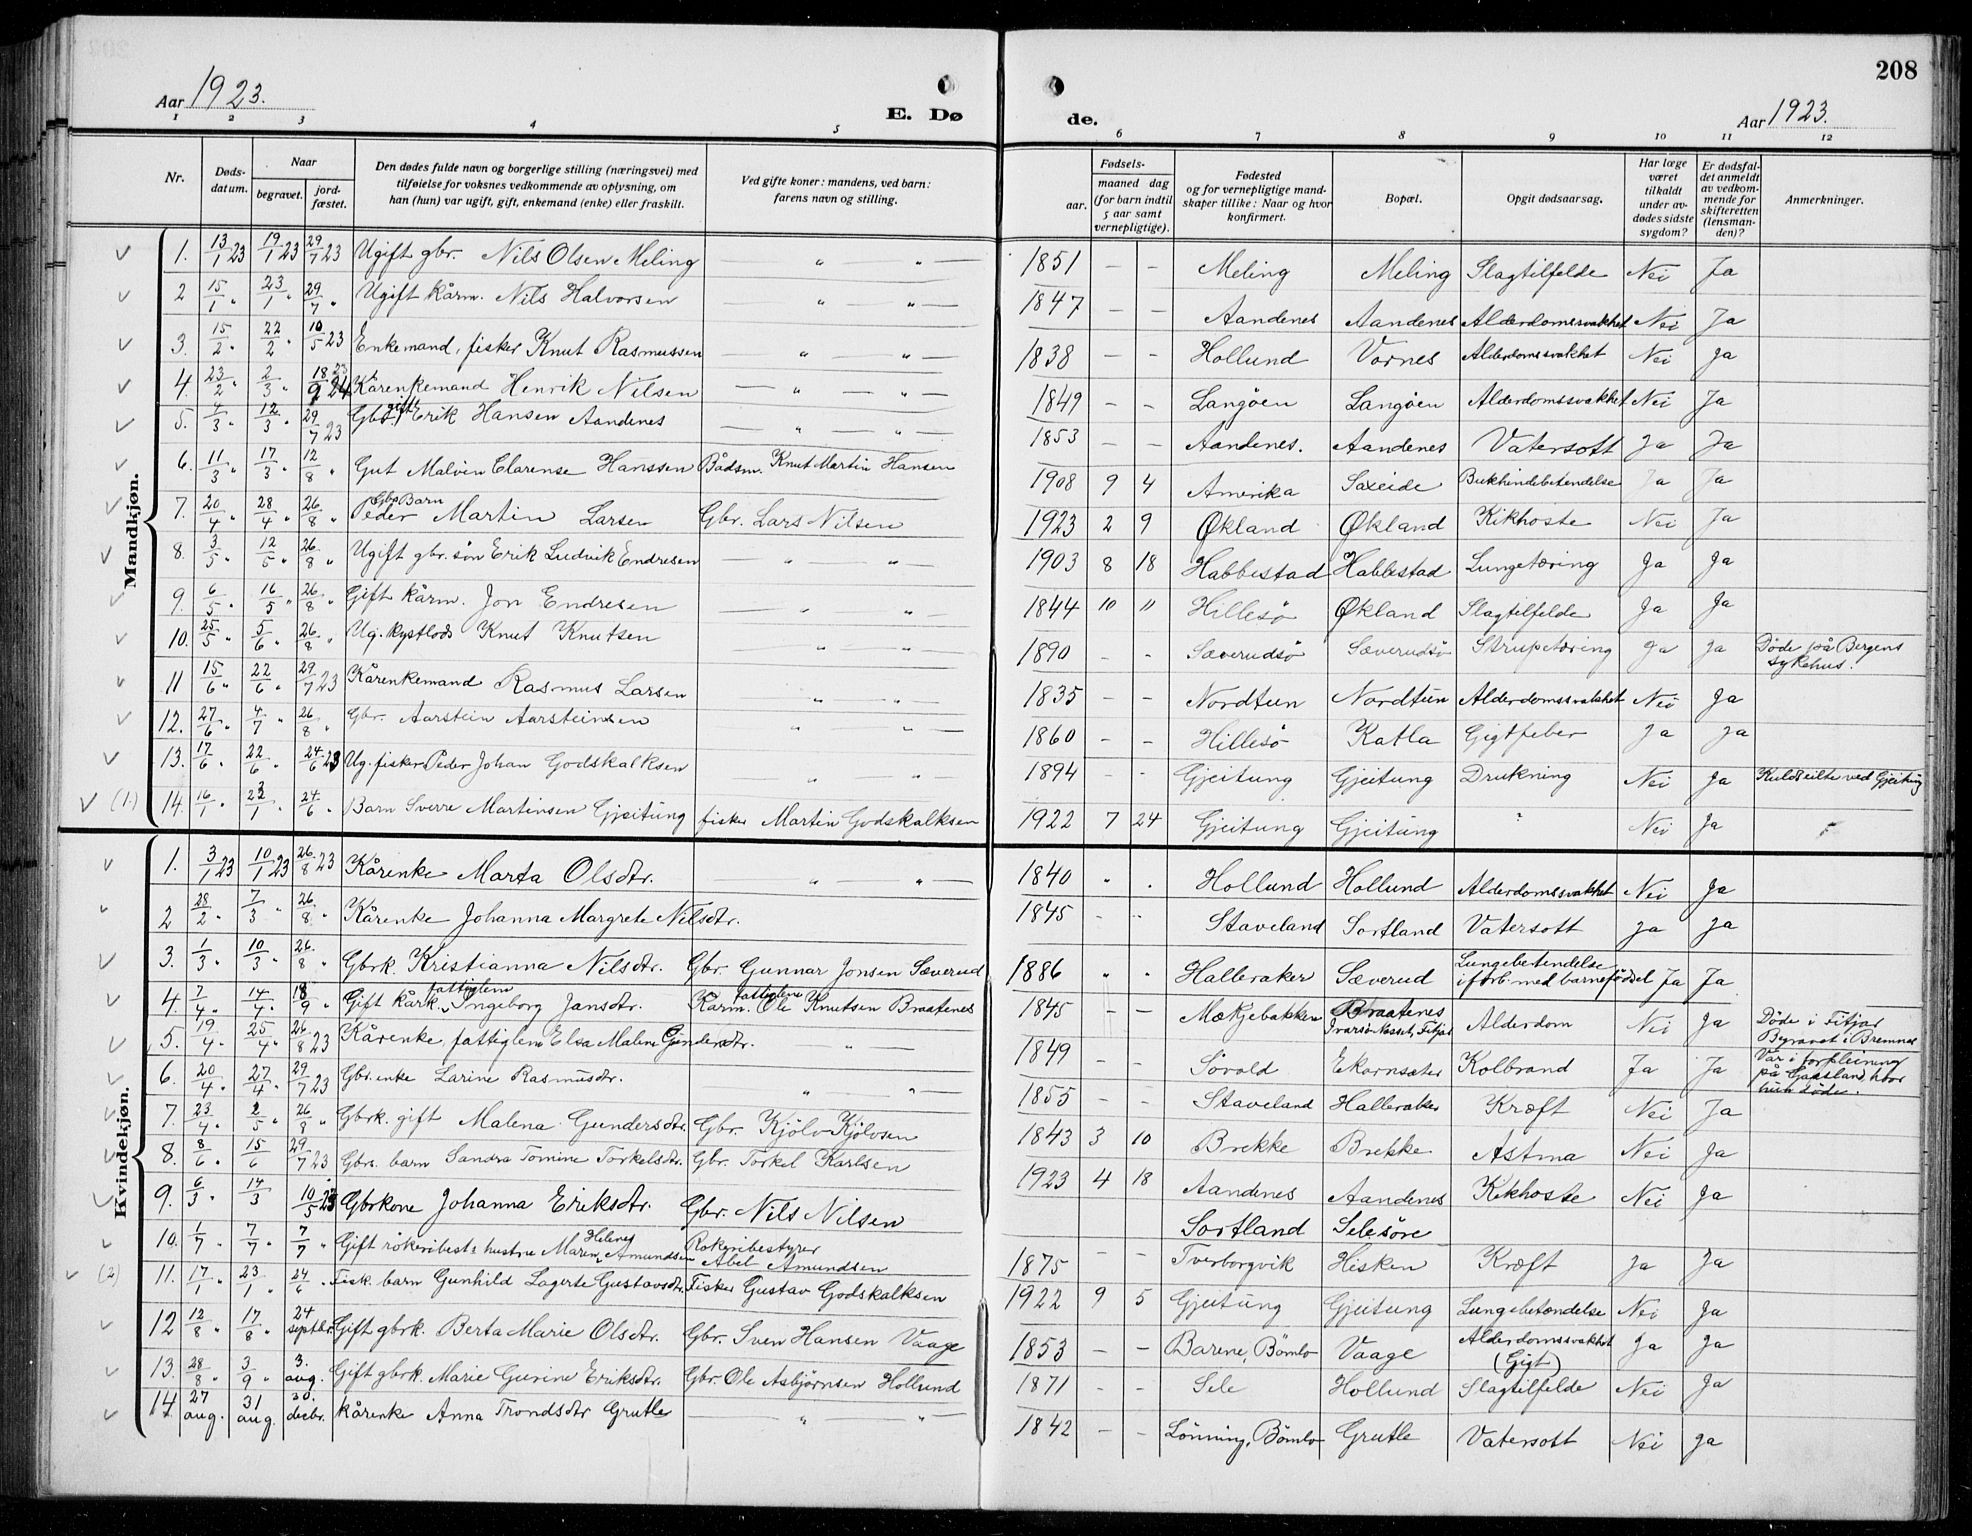 208
Aar 1923.
E. Dø de.
Aar 1923.
1 2 3 4 5 6 7 8 9 10 11 12
Nr.
Døds-
datum.
Naar
begravet.
jord-
fæstet.
Den dødes fulde navn og borgerlige stilling (næringsvei) med
tilføielse for voksnes vedkommende av oplysning, om
han (hun) var ugift, gift, enkemand (enke) eller fraskilt.
Ved gifte koner: mandens, ved barn:
farens navn og stilling.
Fødsels-
aar. maaned dag
(for barn indtil
5 aar samt
vernepligtige).
Fødested
og for vernepligtige mand-
skaper tillike: Naar og hvor
konfirmert.
Bopæl.
Opgit dødsaarsag.
Har læge
været
tilkaldt
under av-
dødes sidste
sygdom?
Er dødsfal-
det anmeldt
av vedkom-
mende for
skifteretten
(lensman-
den)?
Anmerkninger.
Mandkjøn.
1. 13/1 23 19/1 23 29/7 23 Ugift gbr. Nils Olsen Meling — " — " — 1851 — — Meling Meling Slagtilfelde Nei Ja
2 15/1 " 23/1 " 29/7 " Ugift kårm. Nils Halvorsen — " — " — 1847 — — Aandenes Aandenes Alderdomssvakhet Nei Ja
3. 15/2 " 22/2 " 10/5 23 Enkemand, fisker Knut Rasmussen — " — " — 1838 — — Hollund Vornes Alderdomssvakhet Nei Ja
4. 23/2 " 2/3 " 18/9 Kårenkemand Henrik Nilsen — " — " — 1849 — — Langøen Langøen Alderdomssvakhet Nei Ja
5. 4/3 " 12/3 " 29/7 23 Gbr. gift Erik Hansen Aandenes — " — " — 1853 — — Aandenes. Aandenes Vatersott Ja Ja
6. 11/3 " 17/3 " 12/8 " Gut Malvin Clarense Hanssen Bådsm. Knut Martin Hansen 1908 9 4 Amerika Saxeide Bukhindebetendelse Ja Ja
7. 20/4 " 28/4 " 26/8 " Gbr. Barn Peder Martin Larsen Gbr. Lars Nilsen 1923 2 9 Økland Økland Kikhoste Nei Ja
8. 3/5 " 12/5 " 26/8 " Ugift gbr. søn Erik Ludvik Endresen — " — " — 1903 8 18 Habbestad Habbestad Lungetæring Ja Ja
9. 6/5 " 16/5 " 26/8 " Gift kårm. Jon Endresen — " — " — 1844 10 11 Hillesø Økland Slagtilfelde Ja Ja
10. 25/5 " 5/6 " 26/8 " Ug. kystlods Knut Knutsen — " — " — 1890 — — Sæverudsø Sæverudsø Strupetæring Ja Ja Døde på Bergens
sykehus.
11 15/6 " 22/6 " 29/7 23 Kårenkemand Rasmus Larsen — " — " — 1835 — — Nordtun Nordtun Alderdomssvakhet Nei Ja
12. 27/6 " 4/7 " 26/8 " Gbr. Aarstein Aarsteinsen — " — " — 1860 — — Hillesø Katla Gigtfeber Ja Ja
13. 17/6 " 22/6 " 24/6 23 Ug. fisker Peder Johan Godskalksen — " — " — 1894 — — Gjeitung Gjeitung Drukning Nei Ja Kuldseilte ved Gjeitung
(1.) 14. 16/1 " 23/1 " 24/6 " Barn Sverre Martinsen Gjeitung fisker Martin Godskalksen 1922 7 24 Gjeitung Gjeitung " Nei Ja
Kvindekjøn.
1. 3/1 23 10/1 23 26/8 23 Kårenke Marta Olsdtr. — " — " — 1840 " " Hollund Hollund Alderdomssvakhet Nei Ja
2 28/2 " 7/3 " 26/8 " Kårenke Johanna Margrete Nilsdtr. 1845 - - Staveland Sortland Vatersott Ja Ja
3. 1/3 " 10/3 " 26/8 " Gbrk. Kristianna Nilsdtr. Gbr. Gunnar Jonsen Sæverud 1886 " " Halleraker Sæverud Lungebetendelse
i forb. med barnefødsel Ja Ja
4. 7/4 " 14/4 " 18/9 " Gift kårk. fattiglem Ingeborg Jansdtr. Kårm. fattiglem Ole Knutsen Braatenes 1845 — — Mækjebakken Braatenes
Ivarsøknesset, Fitjar Alderdom Nei Ja Døde i Fitjar
Begravet i Bremnes
5. 19/4 " 25/4 " 26/8 23 Kårenke, fattiglem Elsa Malene Gundersdtr. — " — 1849 — — Søvold Ekornsæter Kolbrand Ja Ja Var i forpleining
på Gaasland, hvor
hun døde.
6. 20/4 " 27/4 " 29/7 23 Gbr. enke Larine Rasmusdtr. — " — " — 1855 — — Staveland Halleraker Kræft Nei Ja
7. 23/4 " 2/5 " 26/8 " Gbrk. gift Malena Gundersdtr. Gbr. Kjølv Kjølvsen 1843 3 10 Brekke Brekke Astma Nei Ja
8. 8/6 " 15/6 29/7 23 Gbrs. barn Sandra Tomine Torkelsdtr. Gbr. Torkel Karlsen 1923 4 18 Aandenes Aandenes Kikhoste Nei Ja
9. 6/3 " 14/3 10/5 23 Gbrkone Johanna Eriksdtr. Gbr. Nils Nilsen Sortland Selesøre
10. 1/7 " 7/7 " 7/7 " Gift røkeribest.s hustru Maren Helene Amundsen Røkeribestyrer
Abel Amundsen 1875 — — Tverborgvik Hisken Kræft Ja Ja
(2) 11. 17/1 " 23/1 " 24/6 " Fisk. barn Gunhild Lagerte Gustavsdtr. Fisker Gustav Godskalksen 1922 9 5 Gjeitung Gjeitung Lungebetændelse Nei Ja
12 12/8 " 17/8 " 24 septbr. Gift gbrk. Berta Marie Olsdtr. Gbr. Sven Hansen Vaage 1853 — — Barene, Bømlo Vaage Alderdomssvakhet
(Gigt) Ja Ja
13. 28/8 " 3/9 " 3. aug. Gift gbrk. Marie Gurine Eriksdtr. Gbr. Ole Asbjørnsen Hollund 1871 - - Sele Hollund Slagtilfelde Nei Ja
14 27 aug. 31 aug. 30. decbr. kårenke Anna Trondsdtr Grutle — " — " — 1842 — — Lønning, Bømlo Grutle Vatersott Nei Ja